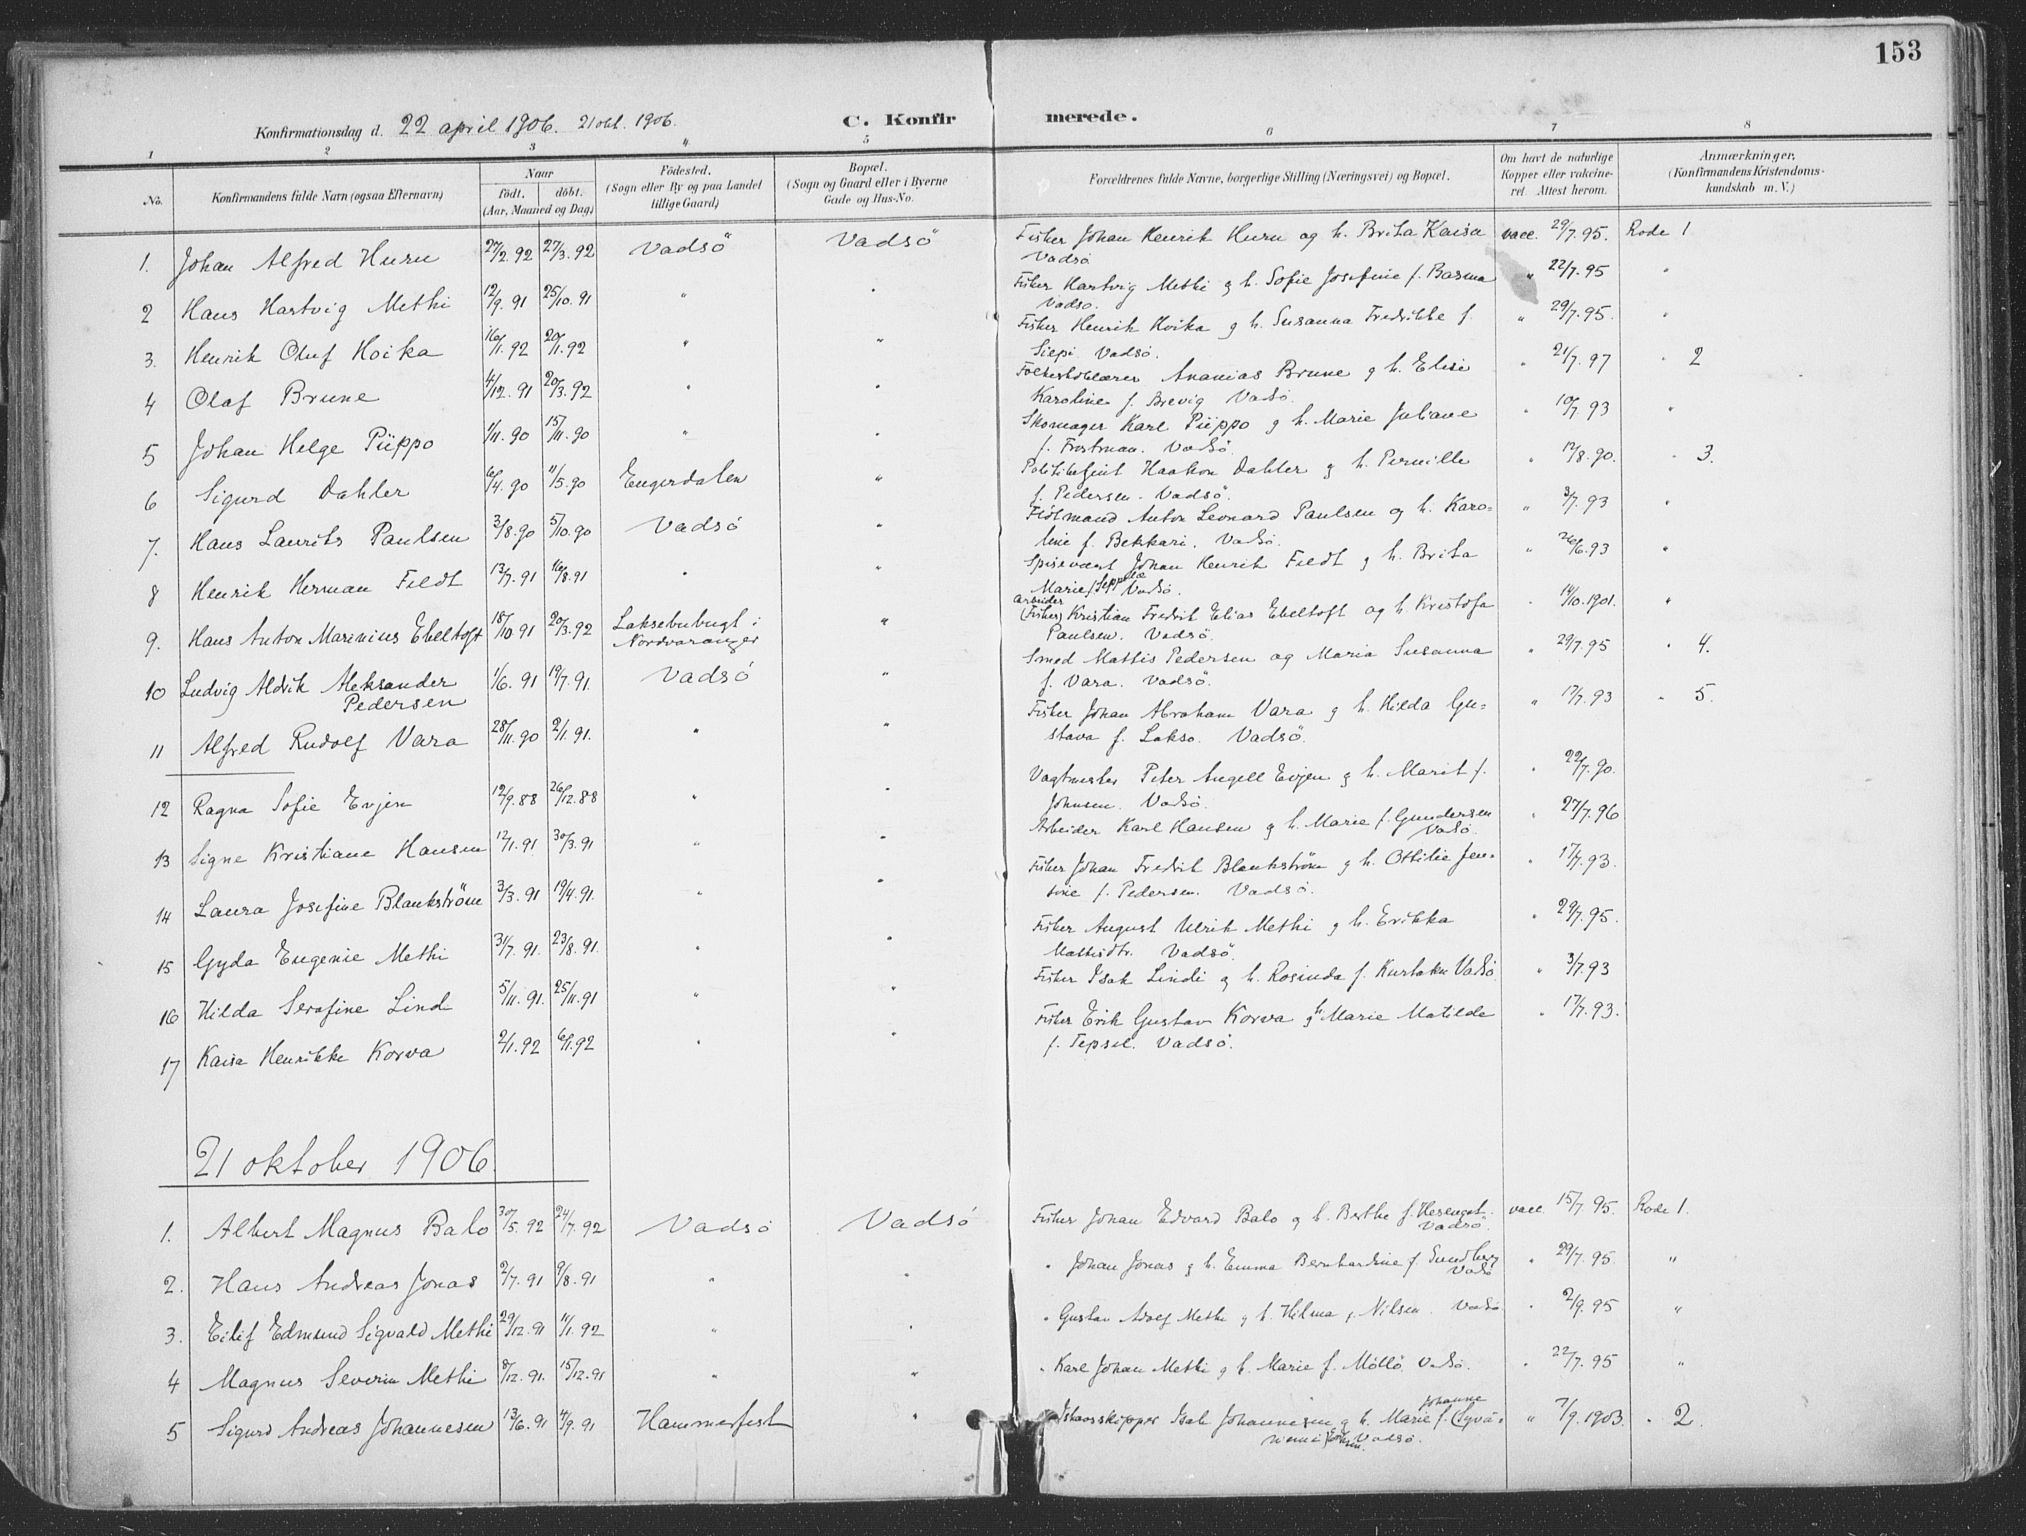 153
Konfirmationsdag d. 22 april 1906. 21 okt. 1906. C. Konfirmerede.
1 2 3 4 5 6 7 8
No. Konfirmandens fulde Navn (ogsaa Efternavn) Naar født. døbt. (Aar, Maaned og Dag) Fødested. (Sogn eller By og paa Landet tillige Gaard) Bopæl. (Sogn og Gaard eller i Byerne Gade og Hus-No. Forældrenes fulde Navne, borgerlige Stilling (Næringsvei) og Bopæl. Om havt de naturlige Kopper eller vakcineret. Attest herom. Anmærkninger, (Konfirmandens Kristendomskundskab m. V.)
1. Johan Alfred Huru 27/2.92 27/3.92 Vadsö Vadsö Fisker Johan Henrik Huru og h. Brita Kaisa Vadsö vacc. 29/7.95. Rode 1
2 Hans Hartvig Methi 12/9.91 25/10.91 " " Fisker Hartvig Methi g h. Sofie Josefine f. Basma Vadsö. " 22/7.95 "
3. Henrik Oluf Hoika 16/1.92 20/1.92 " " Fisker Henrik Hoika g h. Susanna Fredrikke f. Siepi Vadsö. " 29/7.95. "
4 Olaf Brune 4/12.91 20/3.92 " " Folkeskolelærer Ananias Brune g h. Elise Karoline f. Brevig Vadsö. " 21/7.97 " 2
5 Johan Helge Piippo 1/11.90 15/11.90 " " Skomager Karl Piippo g h. Marie Juliane f. Frostman. Vadsö. " 10/7.93 "
6 Sigurd Dahler 6/4.90 11/5.90 Engerdalen " Politibetjent Haakon Dahler g h. Pernille f. Pedersen. Vadsö. " 12/8.90. " 3.
7. Hans Laurits Paulsen 3/8.90 5/10.90 Vadsö " Flötmand Anton Leonard Paulsen og h. Karoline f. Bekkari. Vadsö. " 3/7.93 "
8 Henrik Herman Feldt 13/7.91 16/8.91 " " Spisevært Johan Henrik Feldt g h. Brita Marie f. Seppälä Vadsö. " 26/6.93 "
9. Hans Anton Marinius Ebeltoft 18/10.91 20/3.92 Laksebubugt i Nordvaranger " Arbeider (Fisker) Kristian Fredrik Elias Ebeltoft og h Kristofa Paulsen. Vadsö. " 14/10.1901. "
10 Ludvig Aldrik Aleksander Pedersen 1/6.91 19/7.91. Vadsö " Smed Mattis Pedersen og Maria Susanna f. Vara. Vadsö. " 29/7.95 " 4.
11 Alfred Rudolf Vara 28/11.90 2/1.91. " " Fisker Johan Abraham Vara g h. Hilda Gustava f. Lakso. Vadsö. " 17/7.93 " 5.
12 Ragna Sofie Evjen 12/9.88 26/12.88 " " Vagtmester Peter Angell Evjen g h. Marit f. Johnsen. Vadsö. " 22/7.90.
13 Signe Kristiane Hansen 12/1.91 30/3.91 " " Arbeider Karl Hansen g h. Marie f. Gundersen Vadsö. " 27/7.96
14 Laura Josefine Blankström 3/3.91 19/4.91. " " Fisker Johan Fredrik Blankström g h. Ottilie Jensine f. Pedersen. Vadsö. " 17/7.93.
15 Gyda Eugenie Methi 31/7.91. 23/8.91. " " Fisker August Ulrik Methi g h. Erikka Mattisdtr. Vadsö. " 29/7.95.
16 Hilda Serafine Lind 5/11.91. 25/11.91 " " Fisker Isak Lindi g h. Rosinda f. Vadsö " 3/7.93
17 Kaisa Henrikke Korva 2/1.92 6/1.92 " " Fisker Erik Gustav Korva g h Marie Matilde f. Tepsel. Vadsö. " 17/7.93.
21 oktober 1906.
1. Albert Magnus Balo 30/5.92 24/7.92 Vadsö Vadsö Fisker Johan Edvard Balo g h. Berthe f. Vadsö. vacc. 15/7.95. Rode 1.
2. Hans Andreas Jonas 2/7.91 9/8.91 " " " Johan Jonas g h. Emma Bernhardine f. Sundberg Vadsö " 29/7.95. "
3. Eilif Edmund Sigvald Methi 29/12.91 11/1.92 " " " Gustav Adolf Methi g h. Hilma f. Nilsen. Vadsö. " 2/9.95 "
4 Magnus Severin Methi 8/12.91. 15/12.91 " " " Karl Johan Methi g h. Marie f. Möllö Vadsö. " 22/7.95 "
5 Sigurd Andreas Johannesen 13/6.91 4/9.91 Hammerfest " Ishavsskipper Isak Johannesen g h. Marie Johanne f. (Syväniemi) Eriksen. Vadsö. " 7/9.1903. " 2.